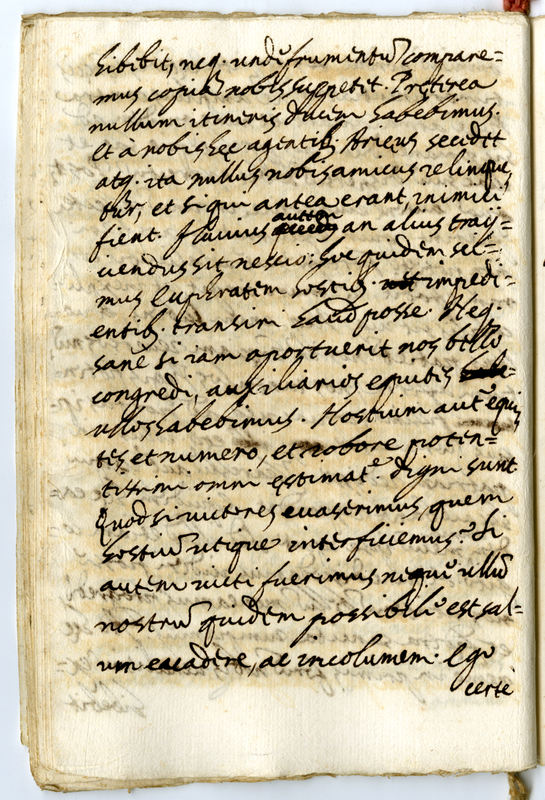 hibebit, neq. undẽ frumentũ compare=
mus copiã nobis suppetit. Preterea
nullum itineris ducem habebimus.
et à nobis hęc agentib. Arięus secedet
atq. ita nullus nobis amicus relinque,
tur, et si qui antea erant, inimici
fient. Fluuius autem an alius traij=
ciendus sit nescio: hoc quidem sci=
mus Euphratem hostib. impedi=
entib. transiri haud posse. Neq.
sanè si iam oportuerit nos bello
congredi, auxiliarios equites
ullos habebimus. Hostium autẽ equi
tes et numero, et robore poten=
tissimi omni ęstimatẽ digni sunt
Quod si uictores euaserimus, quem
hostiũ utique interficiemus? Si
autem uicti fuerimus neque ullũ
nostrũ quidem possibilẽ est sal=
uum euadere, ac incolumem. Ego
certè